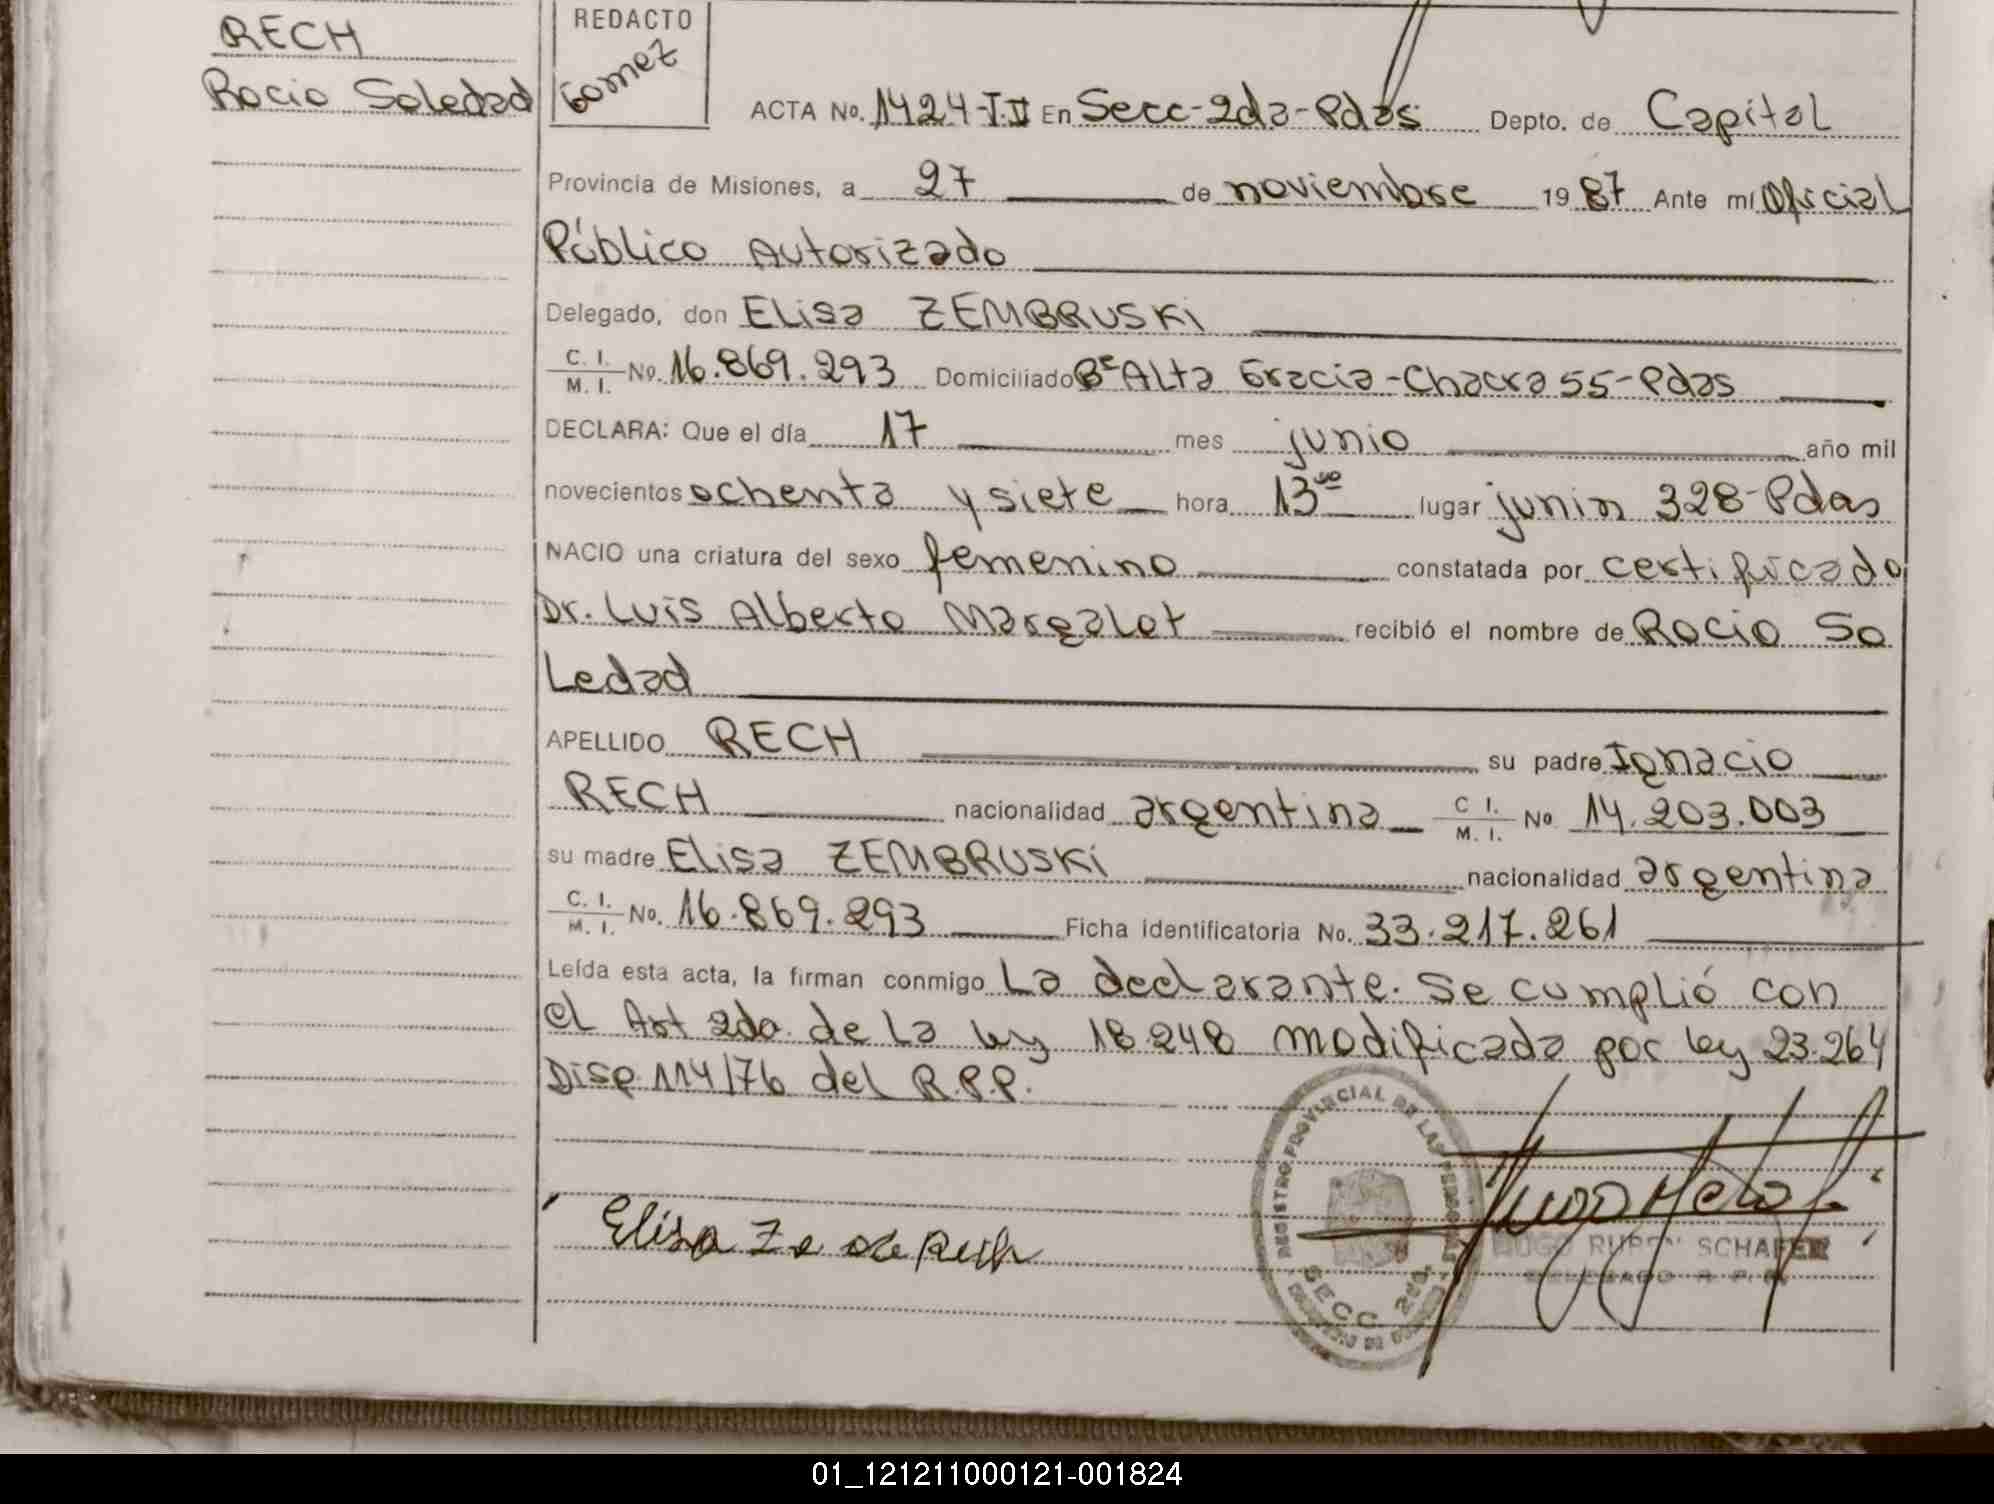 RECH
Rocio Soledad
REDACTO
Gomez
ACTA No. 1424-T.II En Secc-2da-Pdas Depto. de Capital
Provincia de Misiones, a 27 de noviembre 1987 Ante mi Oficial
Público Autorizado
Delegado, don Elisa ZEMBRUSKi
C. I. / M. I. No. 16.869.293 Domiciliado Bº Alta Gracia-Chacra 55-Pdas
DECLARA: Que el día 17 mes junio año mil
novecientos ochenta y siete hora 13 lugar junin 328-Pdas
NACIO una criatura del sexo femenino constatada por certificado
Dr. Luis Alberto Margalot recibió el nombre de Rocio So
Ledad
APELLIDO RECH su padre Ignacio
RECH nacionalidad argentina C I. / M. I. No 14.203.003
su madre Elisa ZEMBRUSKi nacionalidad argentina
C. I. / M. I. No. 16.869.293 Ficha identificatoria No. 33.217.261
Leída esta acta, la firman conmigo La declarante. Se cumplió con
el Art 2do. de la ley 18.248 modificada por ley 23.264
Disp. 114/76 del R.P.P.
REGISTRO PROVINCIAL DE LAS PERSONAS
SECC. 2da.
Elisa Z de Rech
HUGO RUBEN SCHAFER
DELEGADO R. P. P.
01_121211000121-001824